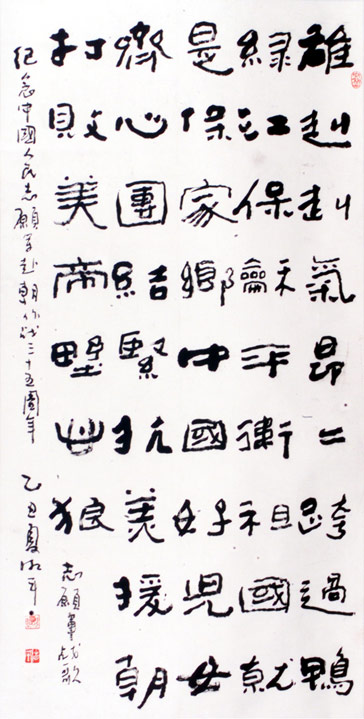 雄赳赳氣昂二跨過鴨
綠江保龢平衛祖國就
是保家鄉中國好兒女
齊心團結緊抗美援朝
打敗美帝野心狼
志願軍戰歌
紀念中國人民志願軍赴朝作戰三十五周年 乙丑夏